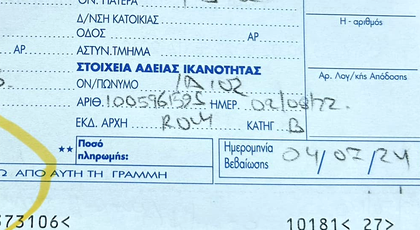 ΟΝ. ΠΑΤΕΡΑ
Δ/ΝΣΗ ΚΑΤΟΙΚΙΑΣ
ΟΔΟΣ ΑΡ.
ΑΡ. ΑΣΤΥΝ.ΤΜΗΜΑ
Η - αριθμός
ΣΤΟΙΧΕΙΑ ΑΔΕΙΑΣ ΙΚΑΝΟΤΗΤΑΣ
Αρ. Λογ/κής Απόδοσης
ΟΝ/ΠΩΝΥΜΟ
ΑΡΙΘ. 1005961595 ΗΜΕΡ. 02/08/22.
ΕΚΔ. ΑΡΧΗ ΚΑΤΗΓ. B
** Ποσό πληρωμής:
Ημερομηνία Βεβαίωσης 04/07/24
ΑΠΟ ΑΥΤΗ ΤΗ ΓΡΑΜΜΗ
73106< 10181< 27>